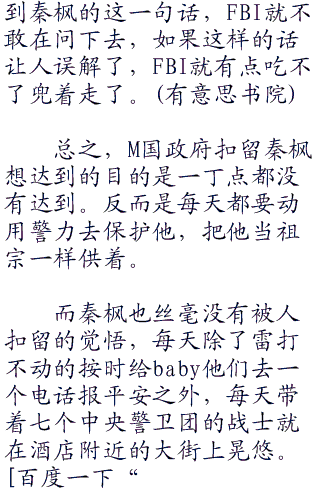 到秦枫的这一句话，FBI就不
敢在问下去，如果这样的话
让人误解了，FBI就有点吃不
了兜着走了。(有意思书院)
总之，M国政府扣留秦枫
想达到的目的是一丁点都没
有达到。反而是每天都要动
用警力去保护他，把他当祖
宗一样供着。
而秦枫也丝毫没有被人
扣留的觉悟，每天除了雷打
不动的按时给baby他们去一
个电话报平安之外，每天带
着七个中央警卫团的战士就
在酒店附近的大街上晃悠。
[百度一下“